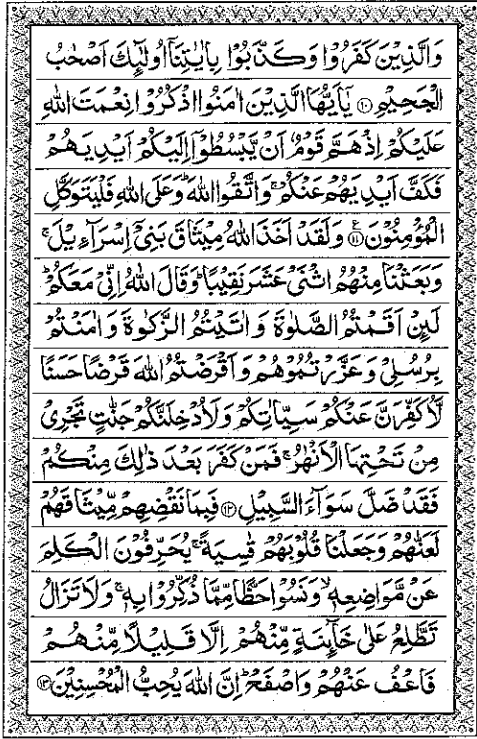 وَالَّذِيْنَ كَفَرُوْا وَكَذَّبُوْا بِاٰيٰتِنَاۤ اُولٰٓئِكَ اَصْحٰبُ
الْجَحِيْمِ ﴿۱۰﴾ يٰۤاَيُّهَا الَّذِيْنَ اٰمَنُوا اذْكُرُوْا نِعْمَتَ اللّٰهِ
عَلَيْكُمْ اِذْ هَمَّ قَوْمٌ اَنْ يَّبْسُطُوْۤا اِلَيْكُمْ اَيْدِيَهُمْ
فَكَفَّ اَيْدِيَهُمْ عَنْكُمْ ۚ وَاتَّقُوا اللّٰهَ ؕ وَعَلَى اللّٰهِ فَلْيَتَوَكَّلِ
الْمُؤْمِنُوْنَ ﴿۱۱﴾ۧ وَلَقَدْ اَخَذَ اللّٰهُ مِيْثَاقَ بَنِيْۤ اِسْرَآءِيْلَ ۚ
وَبَعَثْنَا مِنْهُمُ اثْنَيْ عَشَرَ نَقِيْبًا ؕ وَقَالَ اللّٰهُ اِنِّيْ مَعَكُمْ ؕ
لَئِنْ اَقَمْتُمُ الصَّلٰوةَ وَاٰتَيْتُمُ الزَّكٰوةَ وَاٰمَنْتُمْ
بِرُسُلِيْ وَعَزَّرْتُمُوْهُمْ وَاَقْرَضْتُمُ اللّٰهَ قَرْضًا حَسَنًا
لَّاُكَفِّرَنَّ عَنْكُمْ سَيِّاٰتِكُمْ وَلَاُدْخِلَنَّكُمْ جَنّٰتٍ تَجْرِيْ
مِنْ تَحْتِهَا الْاَنْهٰرُ ۚ فَمَنْ كَفَرَ بَعْدَ ذٰلِكَ مِنْكُمْ
فَقَدْ ضَلَّ سَوَآءَ السَّبِيْلِ ﴿۱۲﴾ فَبِمَا نَقْضِهِمْ مِّيْثَاقَهُمْ
لَعَنّٰهُمْ وَجَعَلْنَا قُلُوْبَهُمْ قٰسِيَةً ۚ يُحَرِّفُوْنَ الْكَلِمَ
عَنْ مَّوَاضِعِهٖ ۙ وَنَسُوْا حَظًّا مِّمَّا ذُكِّرُوْا بِهٖ ۚ وَلَا تَزَالُ
تَطَّلِعُ عَلٰى خَآئِنَةٍ مِّنْهُمْ اِلَّا قَلِيْلًا مِّنْهُمْ
فَاعْفُ عَنْهُمْ وَاصْفَحْ ؕ اِنَّ اللّٰهَ يُحِبُّ الْمُحْسِنِيْنَ ﴿۱۳﴾